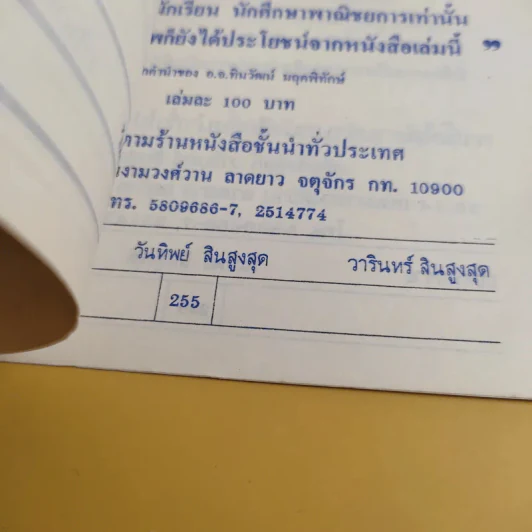 นักเรียน นักศึกษาพาณิชยการเท่านั้น
ก็ยังได้ประโยชน์จากหนังสือเล่มนี้ ”
คำนำของ อ.อ.ทินวัฒน์ มฤคพิทักษ์
เล่มละ 100 บาท
ตามร้านหนังสือชั้นนำทั่วประเทศ
งามวงศ์วาน ลาดยาว จตุจักร กท. 10900
โทร. 5809686-7, 2514774
วันทิพย์ สินสูงสุด วารินทร์ สินสูงสุด
255